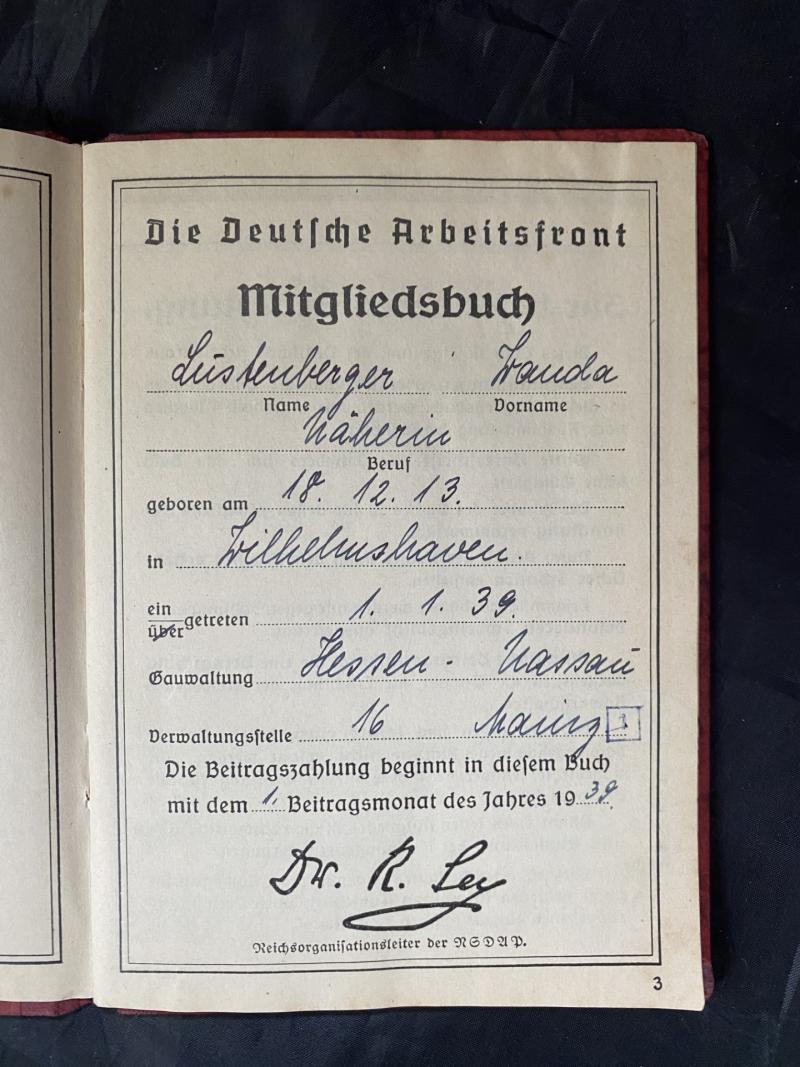 Die Deutsche Arbeitsfront
Mitgliedsbuch
Lustenberger Wanda
Name Vorname
Näherin
Beruf
geboren am 18. 12. 13.
in Wilhelmshaven.
ein
über getreten 1. 1. 39.
Gauwaltung Hessen - Nassau
Verwaltungsstelle 16 Mainz 1
Die Beitragszahlung beginnt in diesem Buch
mit dem 1. Beitragsmonat des Jahres 1939.
Dr. R. Ley
Reichsorganisationsleiter der NSDAP.
3